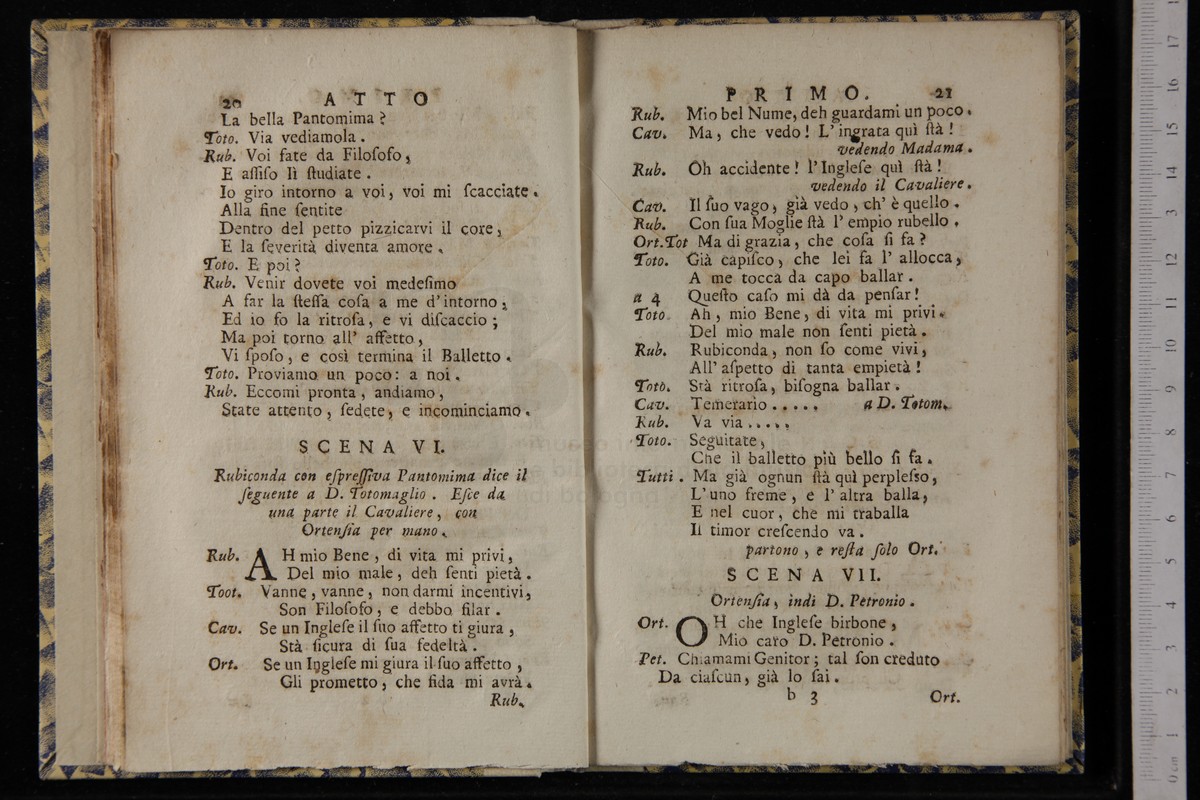 20 ATTO
La bella Pantomima?
Toto. Via vediamola.
Rub. Voi fate da Filoſofo,
E aſſiſo lì ſtudiate.
Io giro intorno a voi, voi mi ſcacciate.
Alla fine ſentite
Dentro del petto pizzicarvi il core,
E la ſeverità diventa amore.
Toto. E poi?
Rub. Venir dovete voi medeſimo
A far la ſteſſa coſa a me d'intorno;
Ed io fo la ritroſa, e vi diſcaccio;
Ma poi torno all' affetto,
Vi ſpoſo, e così termina il Balletto.
Toto. Proviamo un poco: a noi.
Rub. Eccomi pronta, andiamo,
State attento, ſedete, e incominciamo.
SCENA VI.
Rubiconda con eſpreſſiva Pantomima dice il
ſeguente a D. Totomaglio. Eſce da
una parte il Cavaliere, con
Ortenſia per mano.
Rub. AH mio Bene, di vita mi privi,
Del mio male, deh ſenti pietà.
Toot. Vanne, vanne, non darmi incentivi,
Son Filoſofo, e debbo filar.
Cav. Se un Ingleſe il ſuo affetto ti giura,
Stà ſicura di ſua fedeltà.
Ort. Se un Ingleſe mi giura il ſuo affetto,
Gli prometto, che fida mi avrà.
Rub.
PRIMO. 21
Rub. Mio bel Nume, deh guardami un poco.
Cav. Ma, che vedo! L'ingrata quì ſtà!
vedendo Madama.
Rub. Oh accidente! l'Ingleſe quì ſtà!
vedendo il Cavaliere.
Cav. Il ſuo vago, già vedo, ch' è quello.
Rub. Con ſua Moglie ſtà l' empio rubello.
Ort.Tot Ma di grazia, che coſa ſi fa?
Toto. Già capiſco, che lei fa l' allocca,
A me tocca da capo ballar.
a 4 Queſto caſo mi dà da penſar!
Toto. Ah, mio Bene, di vita mi privi.
Del mio male non ſenti pietà.
Rub. Rubiconda, non ſo come vivi,
All' aſpetto di tanta empietà!
Toto. Stà ritroſa, biſogna ballar.
Cav. Temerario..... a D. Totom.
Rub. Va via.....
Toto. Seguitate,
Che il balletto più bello ſi fa.
Tutti. Ma già ognun ſtà quì perpleſso,
L'uno freme, e l' altra balla,
E nel cuor, che mi traballa
Il timor creſcendo va.
partono, e reſta ſolo Ort.
SCENA VII.
Ortenſia, indi D. Petronio.
Ort. OH che Ingleſe birbone,
Mio caro D. Petronio.
Pet. Chiamami Genitor; tal ſon creduto
Da ciaſcun, già lo ſai.
b 3 Ort.